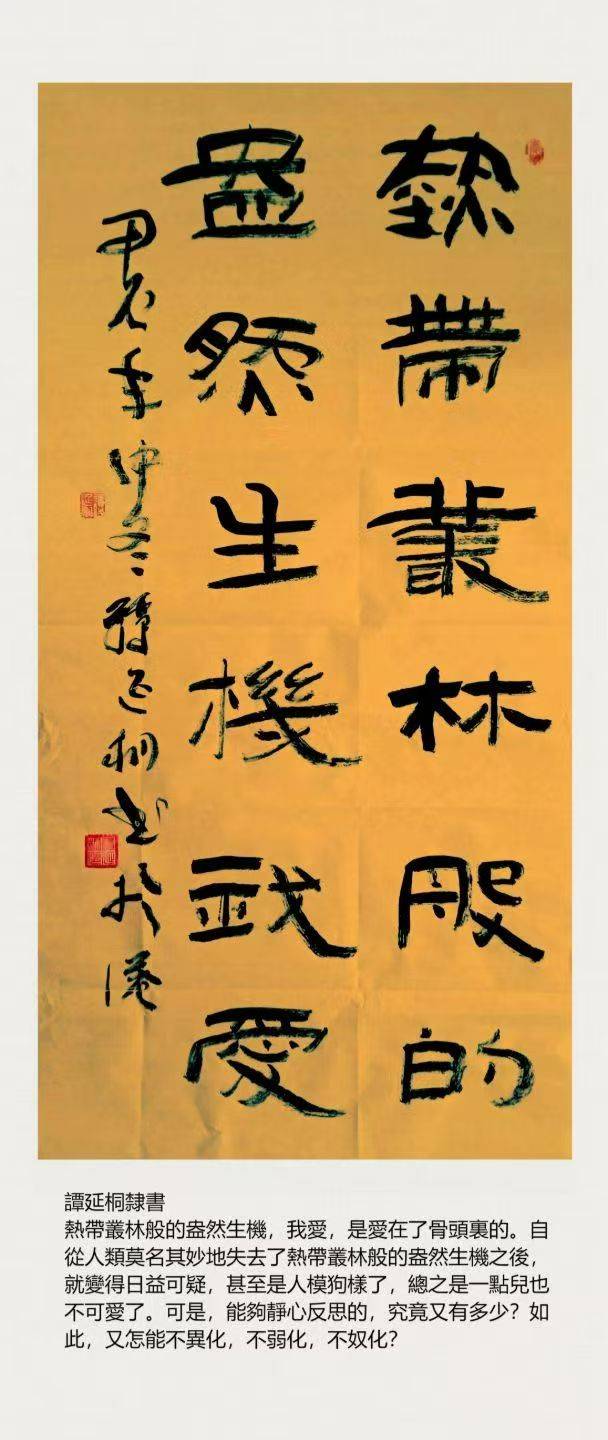 熱帶叢林般的
盎然生機我愛
甲辰年仲冬譚延桐書於港
譚延桐隸書
熱帶叢林般的盎然生機，我愛，是愛在了骨頭裏的。自
從人類莫名其妙地失去了熱帶叢林般的盎然生機之後，
就變得日益可疑，甚至是人模狗樣了，總之是一點兒也
不可愛了。可是，能夠靜心反思的，究竟又有多少？如
此，又怎能不異化，不弱化，不奴化？